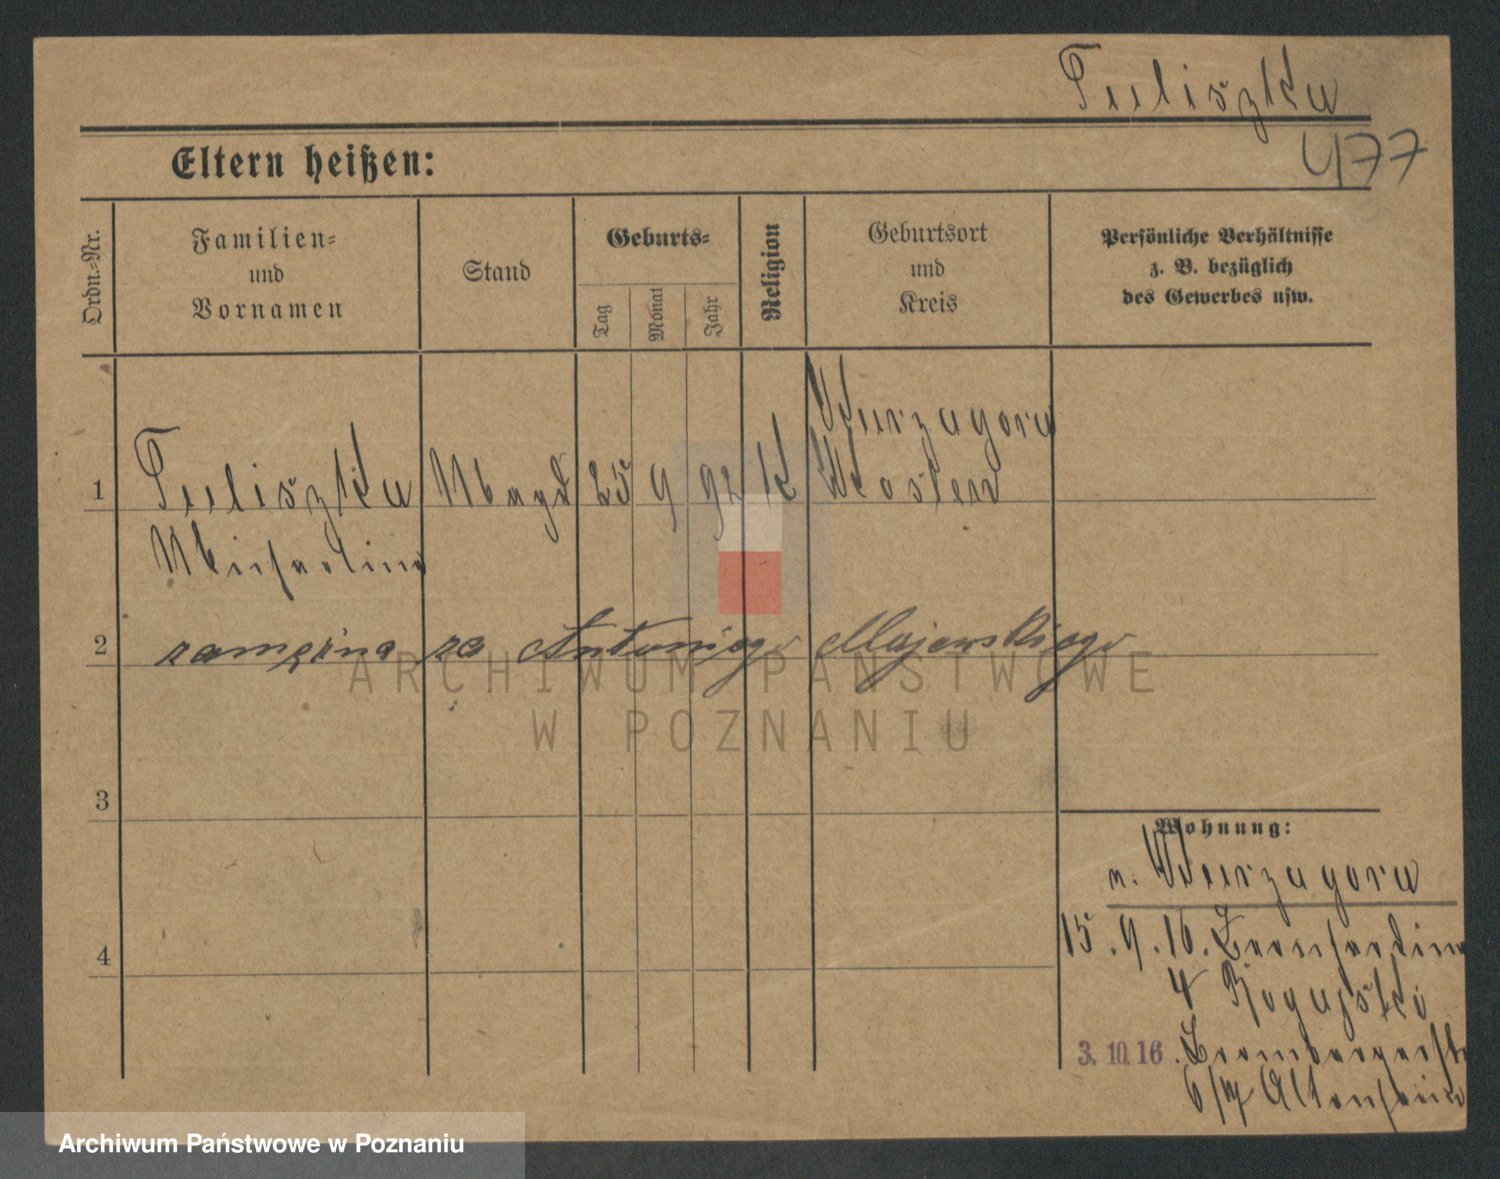 Tuliszka
477
Eltern heißen:
Ordn.-Nr.
Familien-
und
Vornamen
Stand
Geburts-
Tag
Monat
Jahr
Religion
Geburtsort
und
Kreis
Persönliche Verhältnisse
z. B. bezüglich
des Gewerbes usw.
Kurzagora
1 Tuliszka Magd 25 9 92 K Kosten
Michalina
2 zamężna za Antoniego Majewskiego
ARCHIWUM PAŃSTWOWE
W POZNANIU
3
Wohnung:
n. Kurzagora
15.9.16. Bernhardine
4
4 Rogujski
3.10.16. Brombergerstr
6/
Archiwum Państwowe w Poznaniu